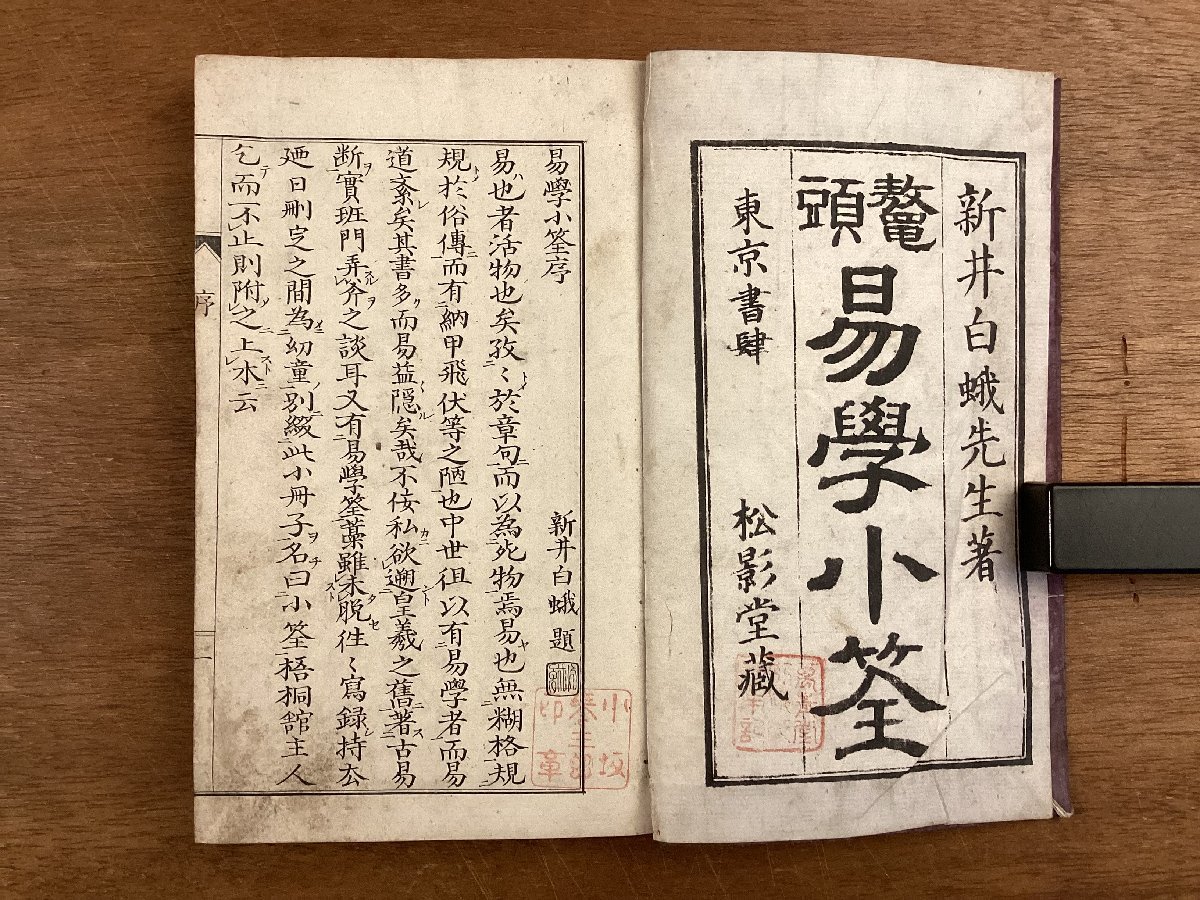 新井白蛾先生著
鼇頭
易學小筌
東京書肆 松影堂藏
易學小筌序
新井白蛾題
易也者活物也矣孜〻於章句而以為死物焉易也無糊格規
規於俗傳而有納甲飛伏等之陋也中世徂以有易學者而易
道紊矣其書多而易益隠矣哉不侫私欲遡皇羲之舊著古易
断實班門弄斧之談耳又有易學筌藁雖未脱徃〻寫録持去
廼日刪定之間為幼童別綴此小冊子名曰小筌梧桐舘主人
乞而不止則附之上木云
序
小坂
印章